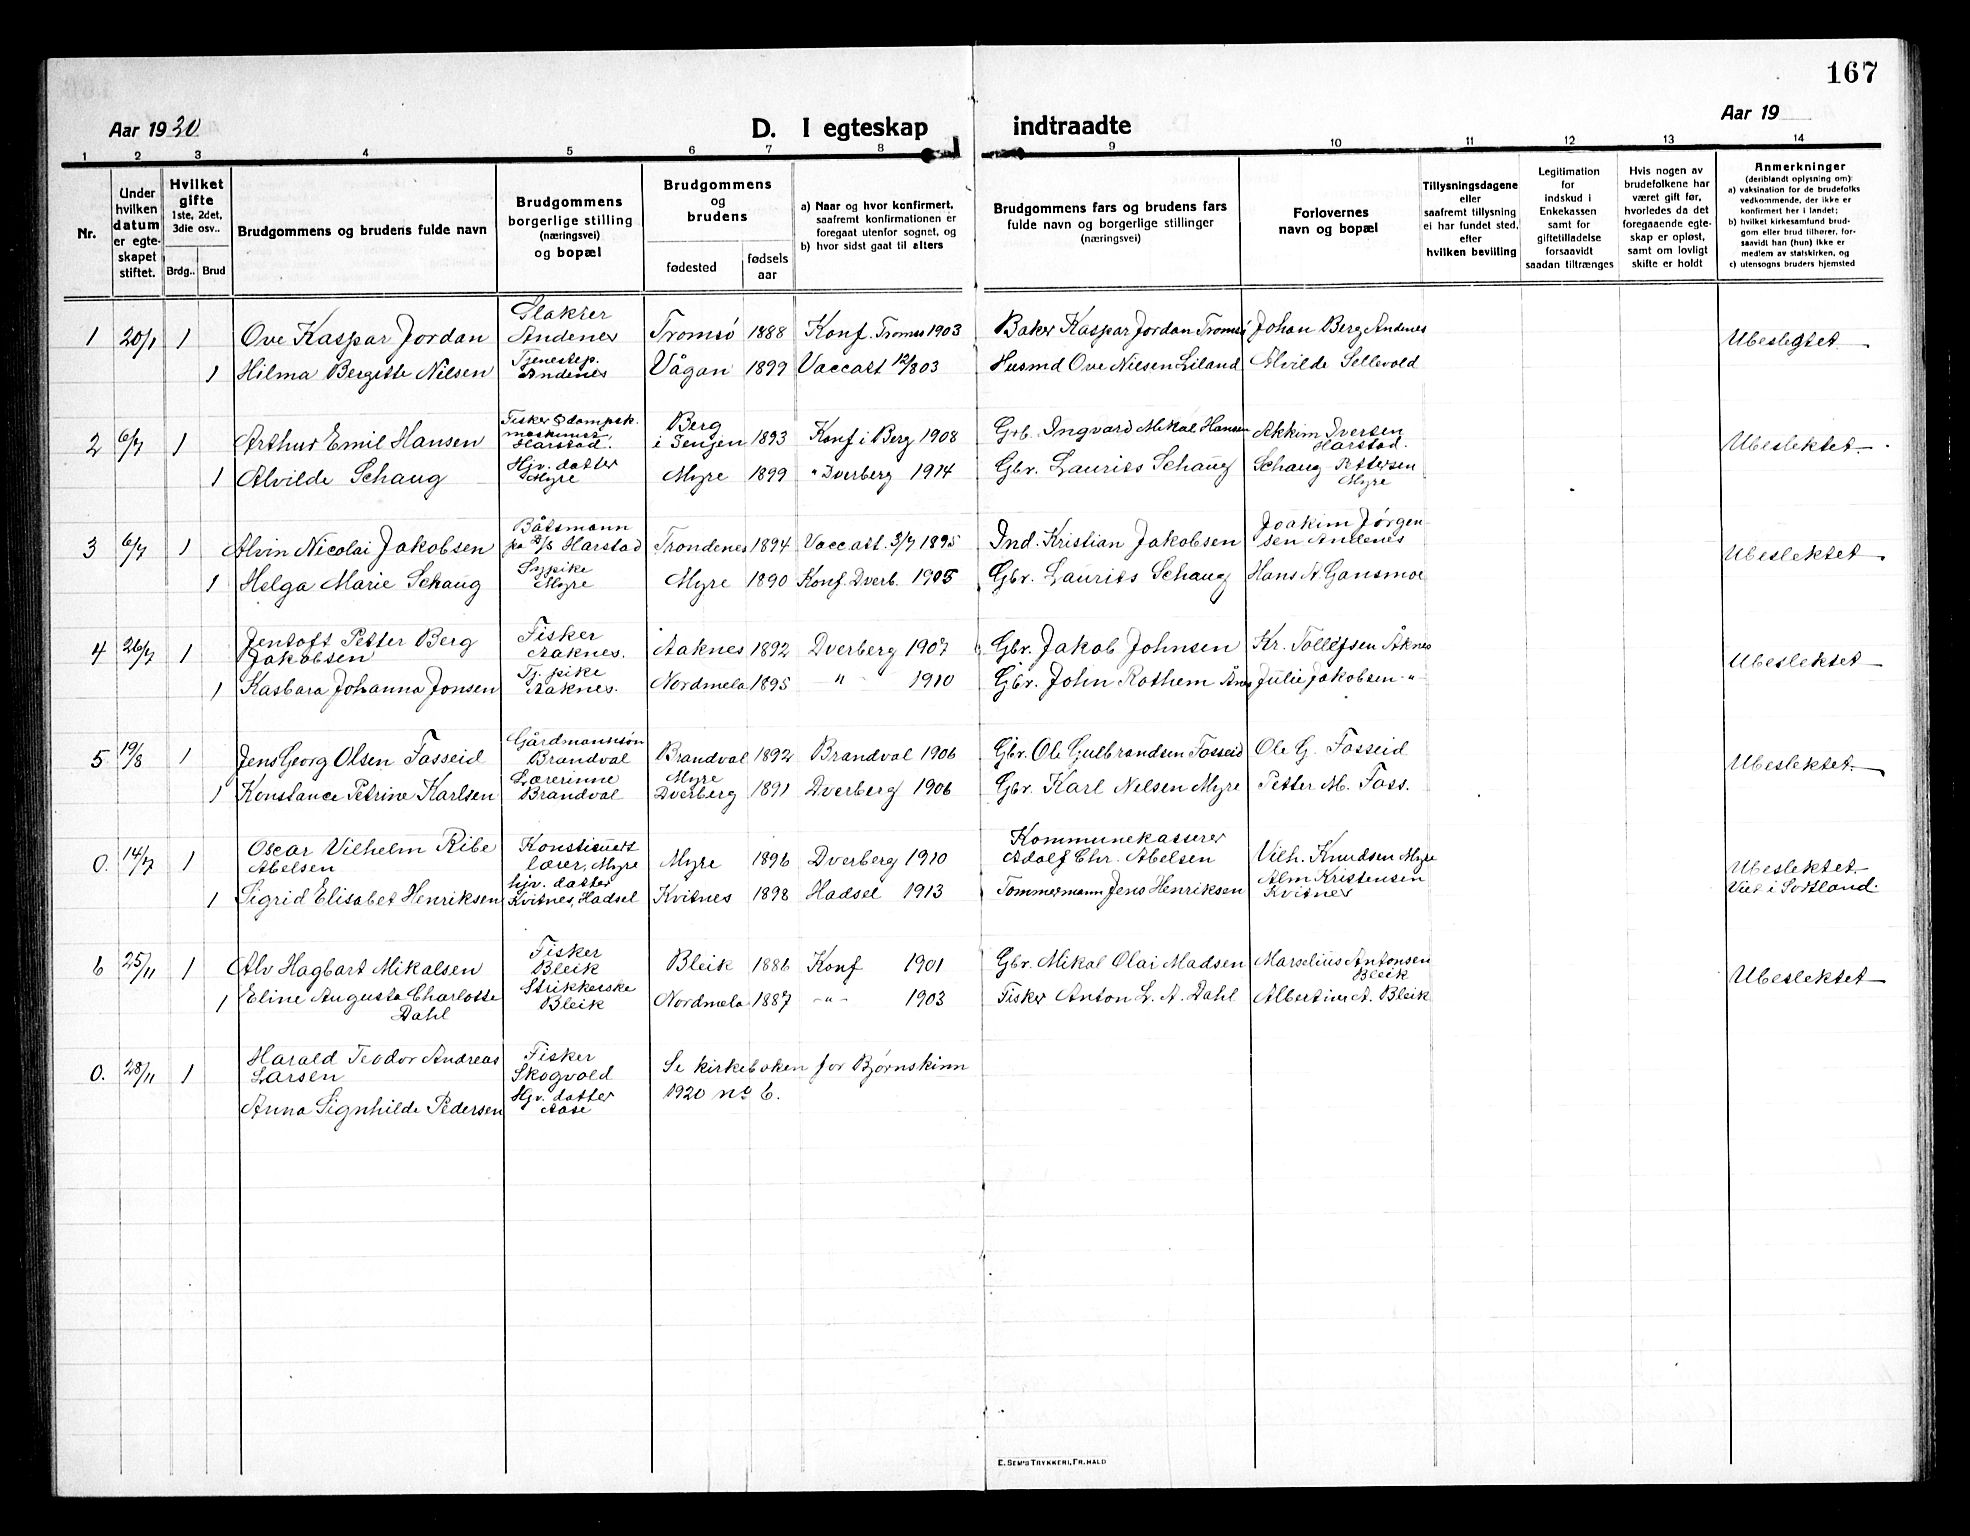 167
Aar 1920
D. I egteskap indtraadte
Aar 19
1 2 3 4 5 6 7 8 9 10 11 12 13 14
Nr.
Under hvilken datum er egteskapet stiftet.
Hvilket gifte 1ste, 2det, 3die osv..
Brdg.. Brud
Brudgommens og brudens fulde navn
Brudgommens borgerlige stilling (næringsvei) og bopæl
Brudgommens og brudens
fødested
fødsels aar
a) Naar og hvor konfirmert, saafremt konfirmationen er foregaat utenfor sognet, og
b) hvor sidst gaat til alters
Brudgommens fars og brudens fars fulde navn og borgerlige stillinger (næringsvei)
Forlovernes navn og bopæl
Tillysningsdagene eller saafremt tillysning ei har fundet sted, efter hvilken bevilling
Legitimation for indskud i Enkekassen samt for giftetilladelse forsaavidt saadan tiltrænges
Hvis nogen av brudefolkene har været gift før, hvorledes da det foregaaende egteskap er opløst, samt om lovligt skifte er holdt
Anmerkninger (deriblandt oplysning om):
a) vaksination for de brudefolks vedkommende, der ikke er konfirmert her i landet;
b) hvilket kirkesamfund brudgom eller brud tilhører, forsaavidt han (hun) ikke er medlem av statskirken, og
c) utensogns bruders hjemsted
1 20/1 1 Ove Kaspar Jordan Slakter Andenes Tromsö 1888 Konf. Tromsö 1903 Baker Kaspar Jordan Tromsö Johan Berg Andenes Ubeslegtet
1 Hilma Bergitte Nilsen Tjenestep. Andenes Vågan 1899 Vaccatt 12/8 03 Husmd Ove Nilsen Liland Alvilde Sellevold
2 6/7 1 Arthur Emil Hansen Fisker & dampsk. maskinist, Harstad. Berg i Senjen 1893 Konf i Berg 1908 Gbr. Ingvard Mikal Hansen Akkim Iversen Harstad. Ubeslektet.
1 Alvilde Schaug Hjv. datter Myre Myre 1899 " Dverberg 1914 Gbr. Laurits Schaug Schaug Pettersen Myre
3 6/7 1 Alvin Nicolai Jakobsen Båtsmann på D/S Harstad Trondenes 1894 Vaccatt. 3/7 1895 Ind. Kristian Jakobsen Joakim Jørgensen Andenes Ubeslektet
1 Helga Marie Schaug Sypike Myre Myre 1890 Konf. Dverb. 1905 Gbr. Laurits Schaug Hans A Gansmoe
4 26/7 1 Jentoft Petter Berg Jakobsen Fisker Aaknes. Aaknes 1892 Dverberg 1907 Gbr. Jakob Johnsen Kr. Tollefsen Åknes Ubeslektet
1 Kasbara Johanna Jonsen Tj. pike Aaknes. Nordmela 1895 " 1910 Gbr. John Rothem Julie Jakobsen "
5 19/8 1 Jens Georg Olsen Fosseid Gårdmannssön Brandval Brandval 1892 Brandval 1906 Gbr. Ole Gulbrandsen Fosseid Ole G. Fosseid Ubeslektet.
1 Konstance Petrine Karlsen Lærerinne Brandval Myre Dverberg 1891 Dverberg 1906 Gbr. Karl Nilsen Myre Petter M. Foss.
0. 14/7 1 Oscar Vilhelm Ribe Abelsen Konstituert lærer, Myre Myre 1896 Dverberg 1910 Kommunekasserer Adolf Chr. Abelsen Vilh. Knudsen Myre Ubeslektet
1 Sigrid Elisabet Henriksen Hjv. datter Kvitnes, Hadsel Kvitnes 1898 Hadsel 1913 Tømmermann Jens Henriksen Alm Kristensen Kvitnes Viet i Sortland.
6 25/11 1 Alv Hagbart Mikalsen Fisker Bleik Bleik 1886 Konf 1901 Gbr. Mikal Olai Madsen Marselius Antonsen Bleik Ubeslektet
1 Eline Augusta Charlotte Dahl Strikkerske Bleik Nordmela 1887 " 1903 Fisker Anton L. A. Dahl Albertine A. Bleik
0. 28/11 1 Harald Teodor Andreas Larsen Fisker Skogvold Se kirkeboken for Bjørnskinn
Anna Signhilde Pedersen Hjv. datter Aase 1920 no 6.
E. SEM'S TRYKKERI, FR.HALD